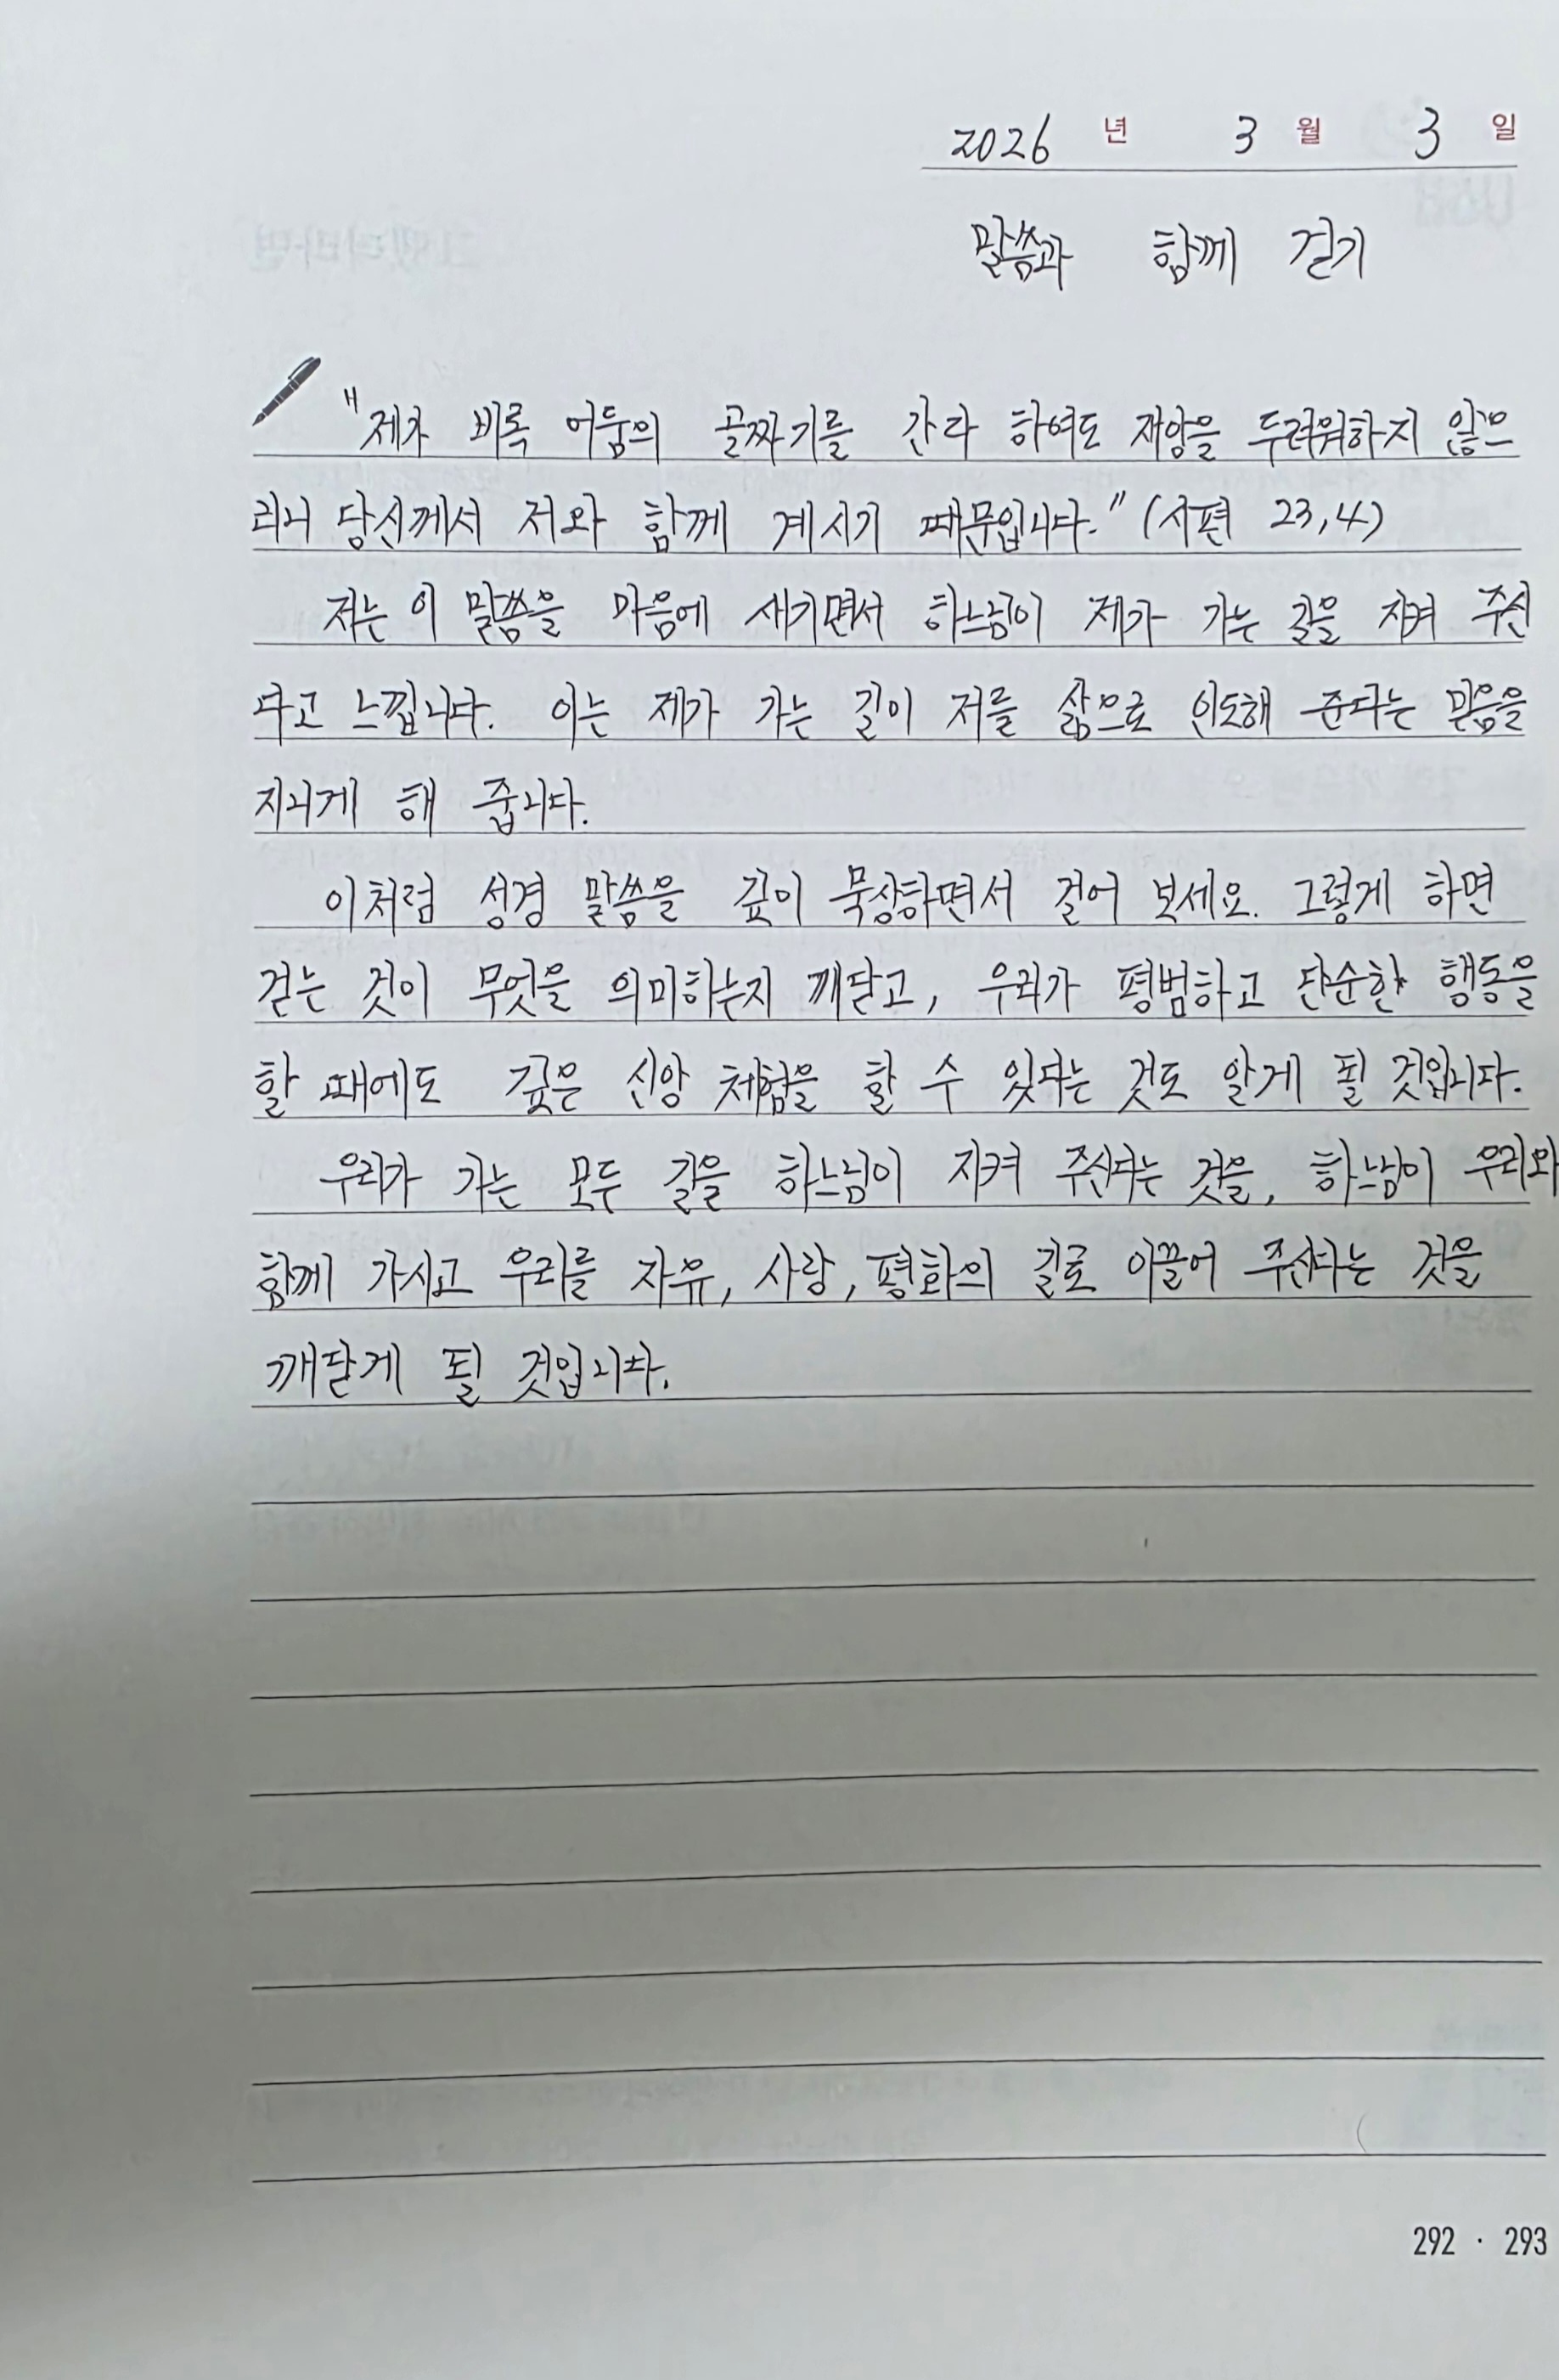 2026 년 3 월 3 일
말씀과 함께 걷기
"제가 비록 어둠의 골짜기를 간다 하여도 재앙을 두려워하지 않으
리니 당신께서 저와 함께 계시기 때문입니다." (시편 23,4)
저는 이 말씀을 마음에 새기면서 하느님이 제가 가는 길을 지켜 주신
다고 느낍니다. 이는 제가 가는 길이 저를 삶으로 인도해 준다는 믿음을
지니게 해 줍니다.
이처럼 성경 말씀을 깊이 묵상하면서 걸어 보세요. 그렇게 하면
걷는 것이 무엇을 의미하는지 깨닫고, 우리가 평범하고 단순한 행동을
할 때에도 깊은 신앙 체험을 할 수 있다는 것도 알게 될 것입니다.
우리가 가는 모두 길을 하느님이 지켜 주신다는 것을, 하느님이 우리와
함께 가시고 우리를 자유, 사랑, 평화의 길로 이끌어 주신다는 것을
깨닫게 될 것입니다.
292 · 293